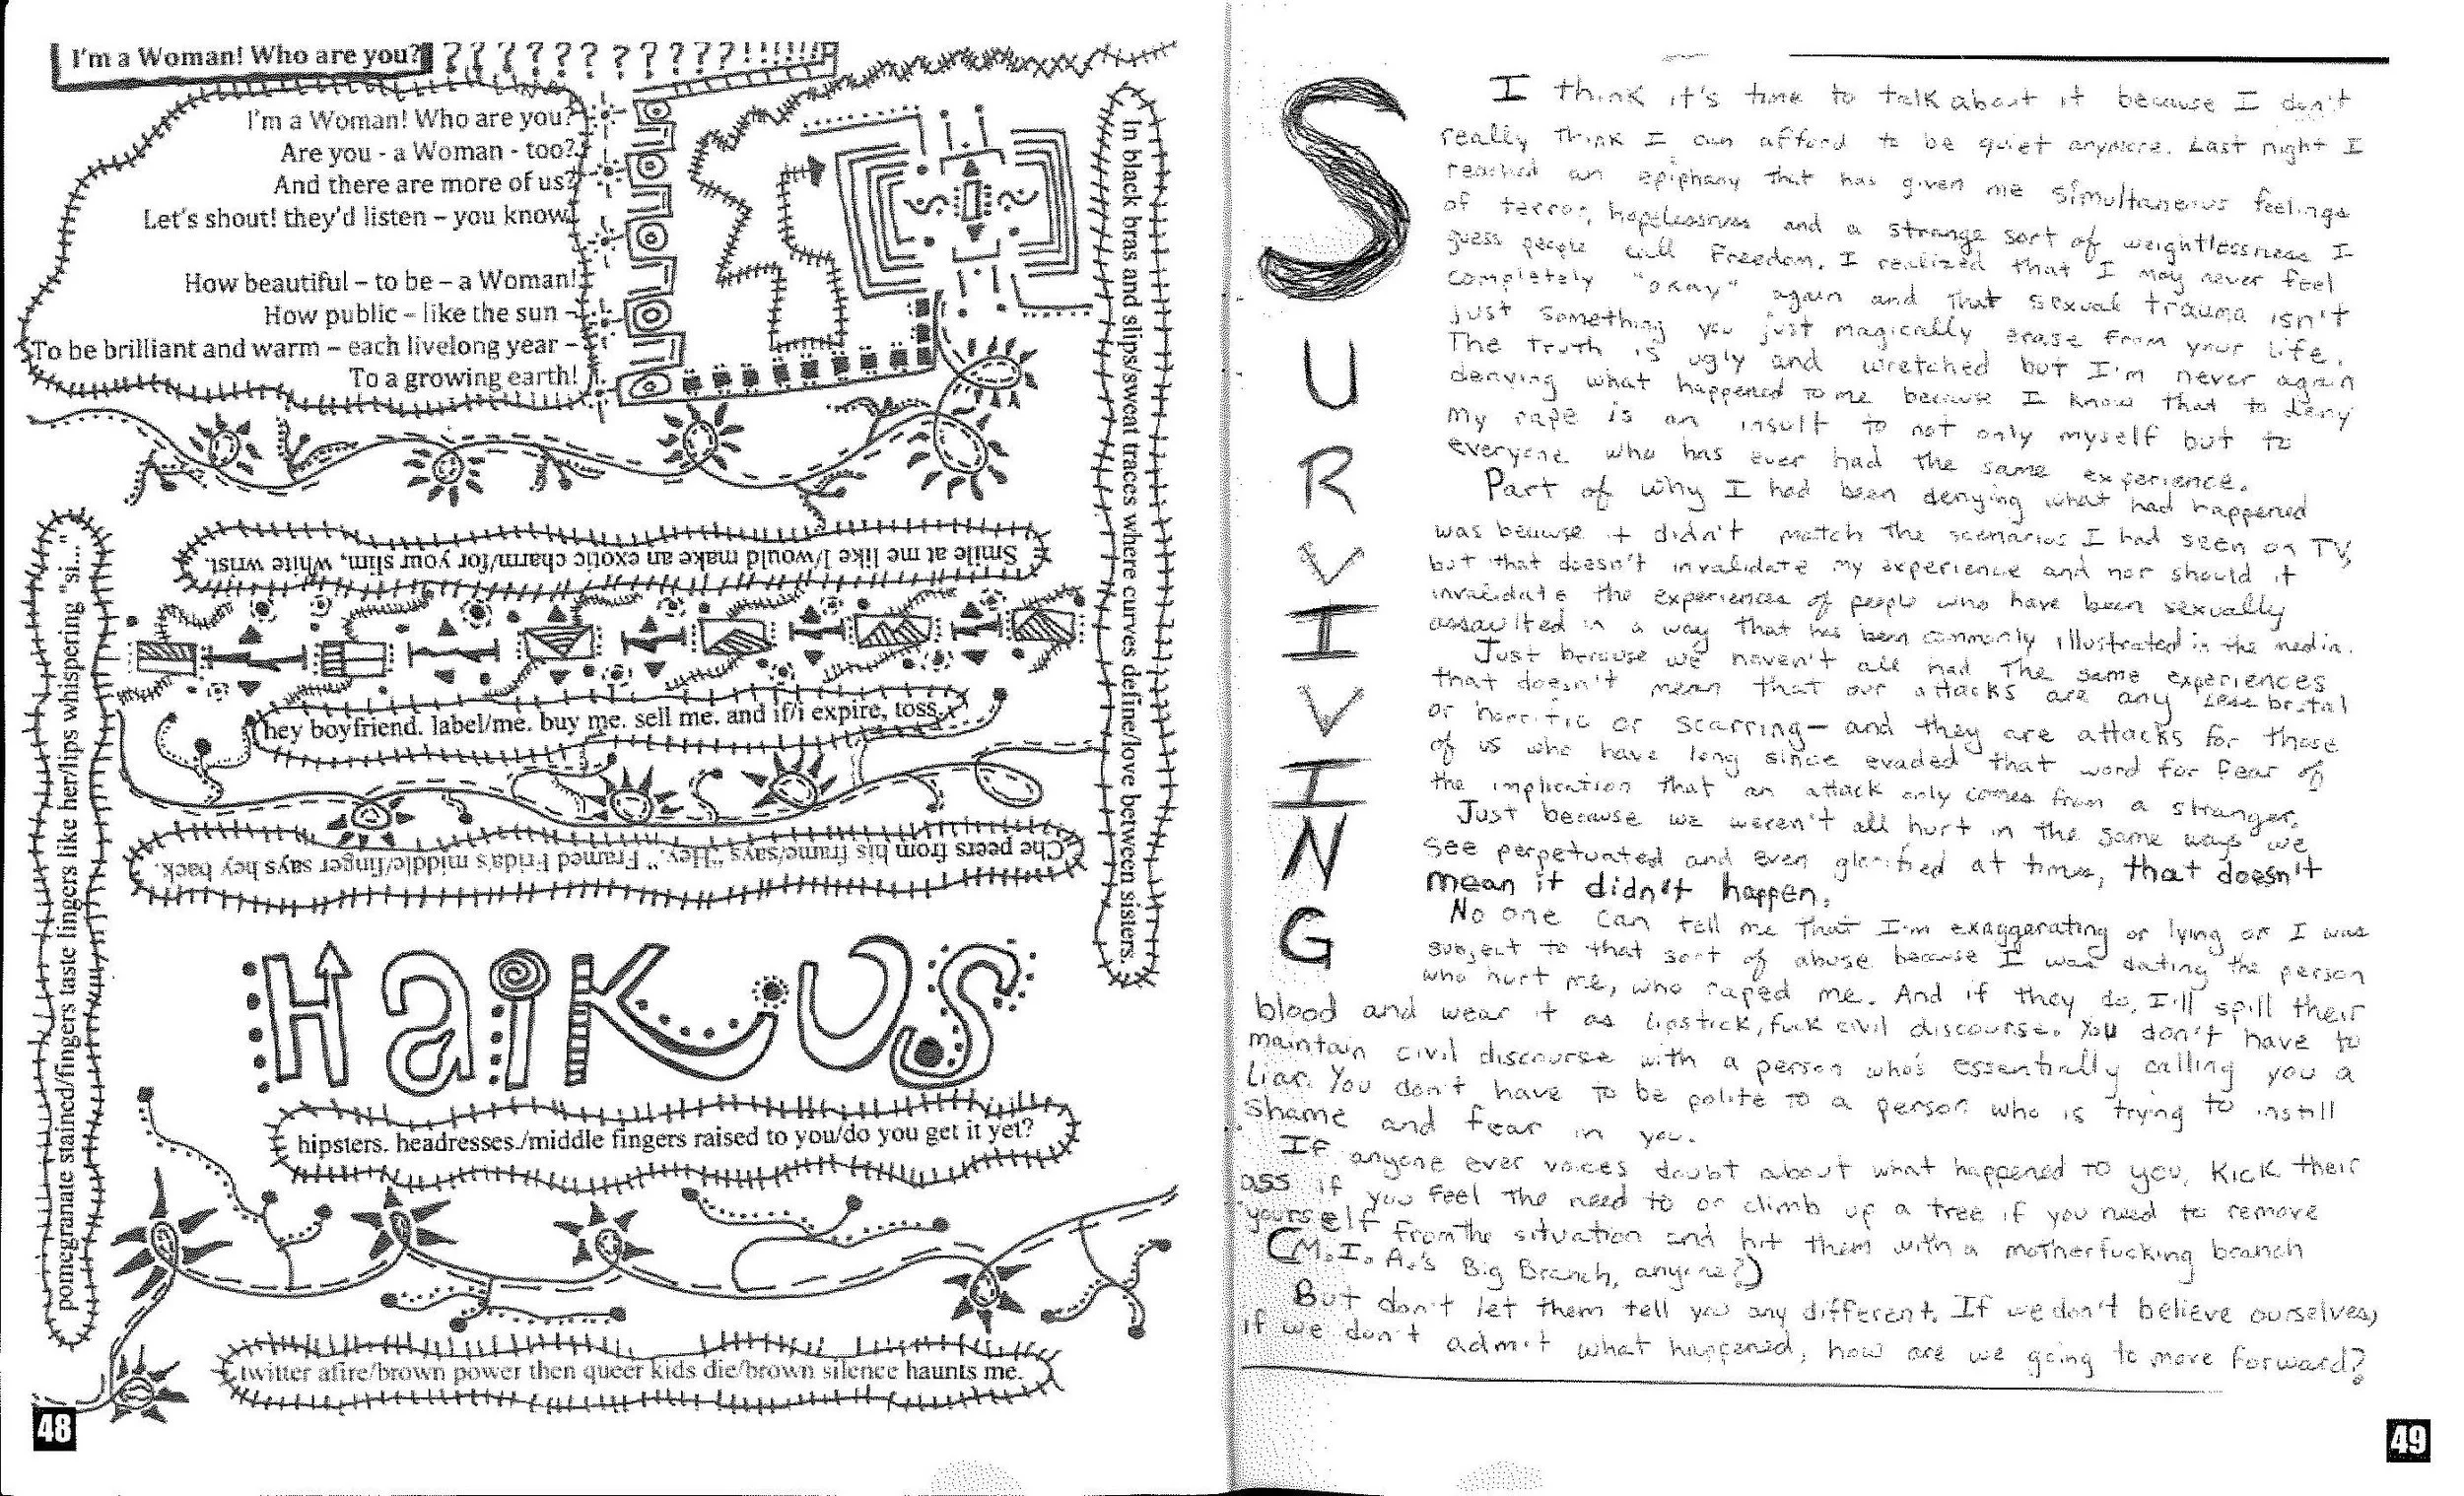 I'm a Woman! Who are you? ? ? ? ? ? ? ? ? ? ? ? ?!!!!!!
I'm a Woman! Who are you?
Are you - a Woman - too?
And there are more of us?
Let's shout! they'd listen – you know.
How beautiful – to be – a Woman!
How public – like the sun –
To be brilliant and warm – each livelong year –
To a growing earth!
In black bras and slips/sweat traces where curves define/love between sisters.
Smile at me like I/would make an exotic charm/for your slim, white wrist.
pomegranate stained/fingers taste lingers like her/lips whispering "si..."
hey boyfriend. label/me. buy me. sell me. and if/i expire, toss.
Che peers from his frame/says "Hey." Framed Frida's middle/finger says hey back.
HaiKUS
hipsters. headresses./middle fingers raised to you/do you get it yet?
twitter afire/brown power then queer kids die/brown silence haunts me.
48
SURVIVING
I think it's time to talk about it because I don't
really think I can afford to be quiet anymore. Last night I
reached an epiphany that has given me simultaneous feelings
of terror, hopelessness and a strange sort of weightlessness I
guess people call Freedom. I realized that I may never feel
completely "okay" again and that sexual trauma isn't
just something you just magically erase from your life.
The truth is ugly and wretched but I'm never again
denying what happened to me because I know that to deny
my rape is an insult to not only myself but to
everyone who has ever had the same experience.
Part of why I had been denying what had happened
was because it didn't match the scenarios I had seen on TV,
but that doesn't invalidate my experience and nor should it
invalidate the experiences of people who have been sexually
assaulted in a way that has been commonly illustrated in the media.
Just because we haven't all had the same experiences
that doesn't mean that our attacks are any less brutal
or horrific or scarring— and they are attacks for those
of us who have long since evaded that word for fear of
the implication that an attack only comes from a stranger.
Just because we weren't all hurt in the same ways we
see perpetuated and even glorified at times, that doesn't
mean it didn't happen.
No one can tell me that I'm exaggerating or lying or I was
subject to that sort of abuse because I was dating the person
who hurt me, who raped me. And if they do, I'll spill their
blood and wear it as lipstick, fuck civil discourse. You don't have to
maintain civil discourse with a person who's essentially calling you a
liar. You don't have to be polite to a person who is trying to instill
shame and fear in you.
If anyone ever voices doubt about what happened to you, kick their
ass if you feel the need to or climb up a tree if you need to remove
yourself from the situation and hit them with a motherfucking branch
(M.I.A.'s Big Branch, anyone?)
But don't let them tell you any different. If we don't believe ourselves,
if we don't admit what happened, how are we going to move forward?
49